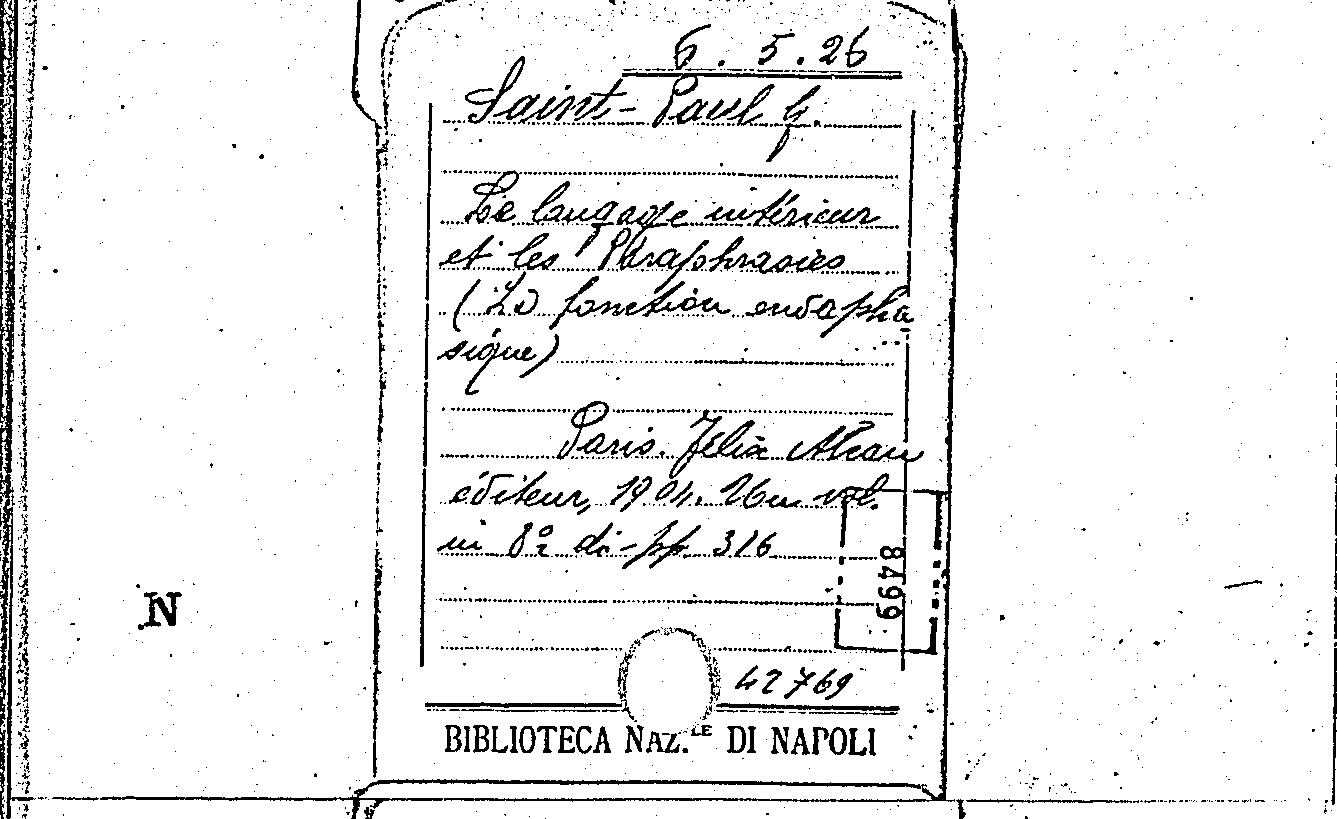 6.5.26
Saint-Paul G.
Le langage intérieur
et les Paraphrasies
(La fonction endopha
sique)
Paris. Félix Alcan
éditeur, 1904. Un vol.
in 8º di pp. 316
8499
N
42769
BIBLIOTECA NAZ.LE DI NAPOLI